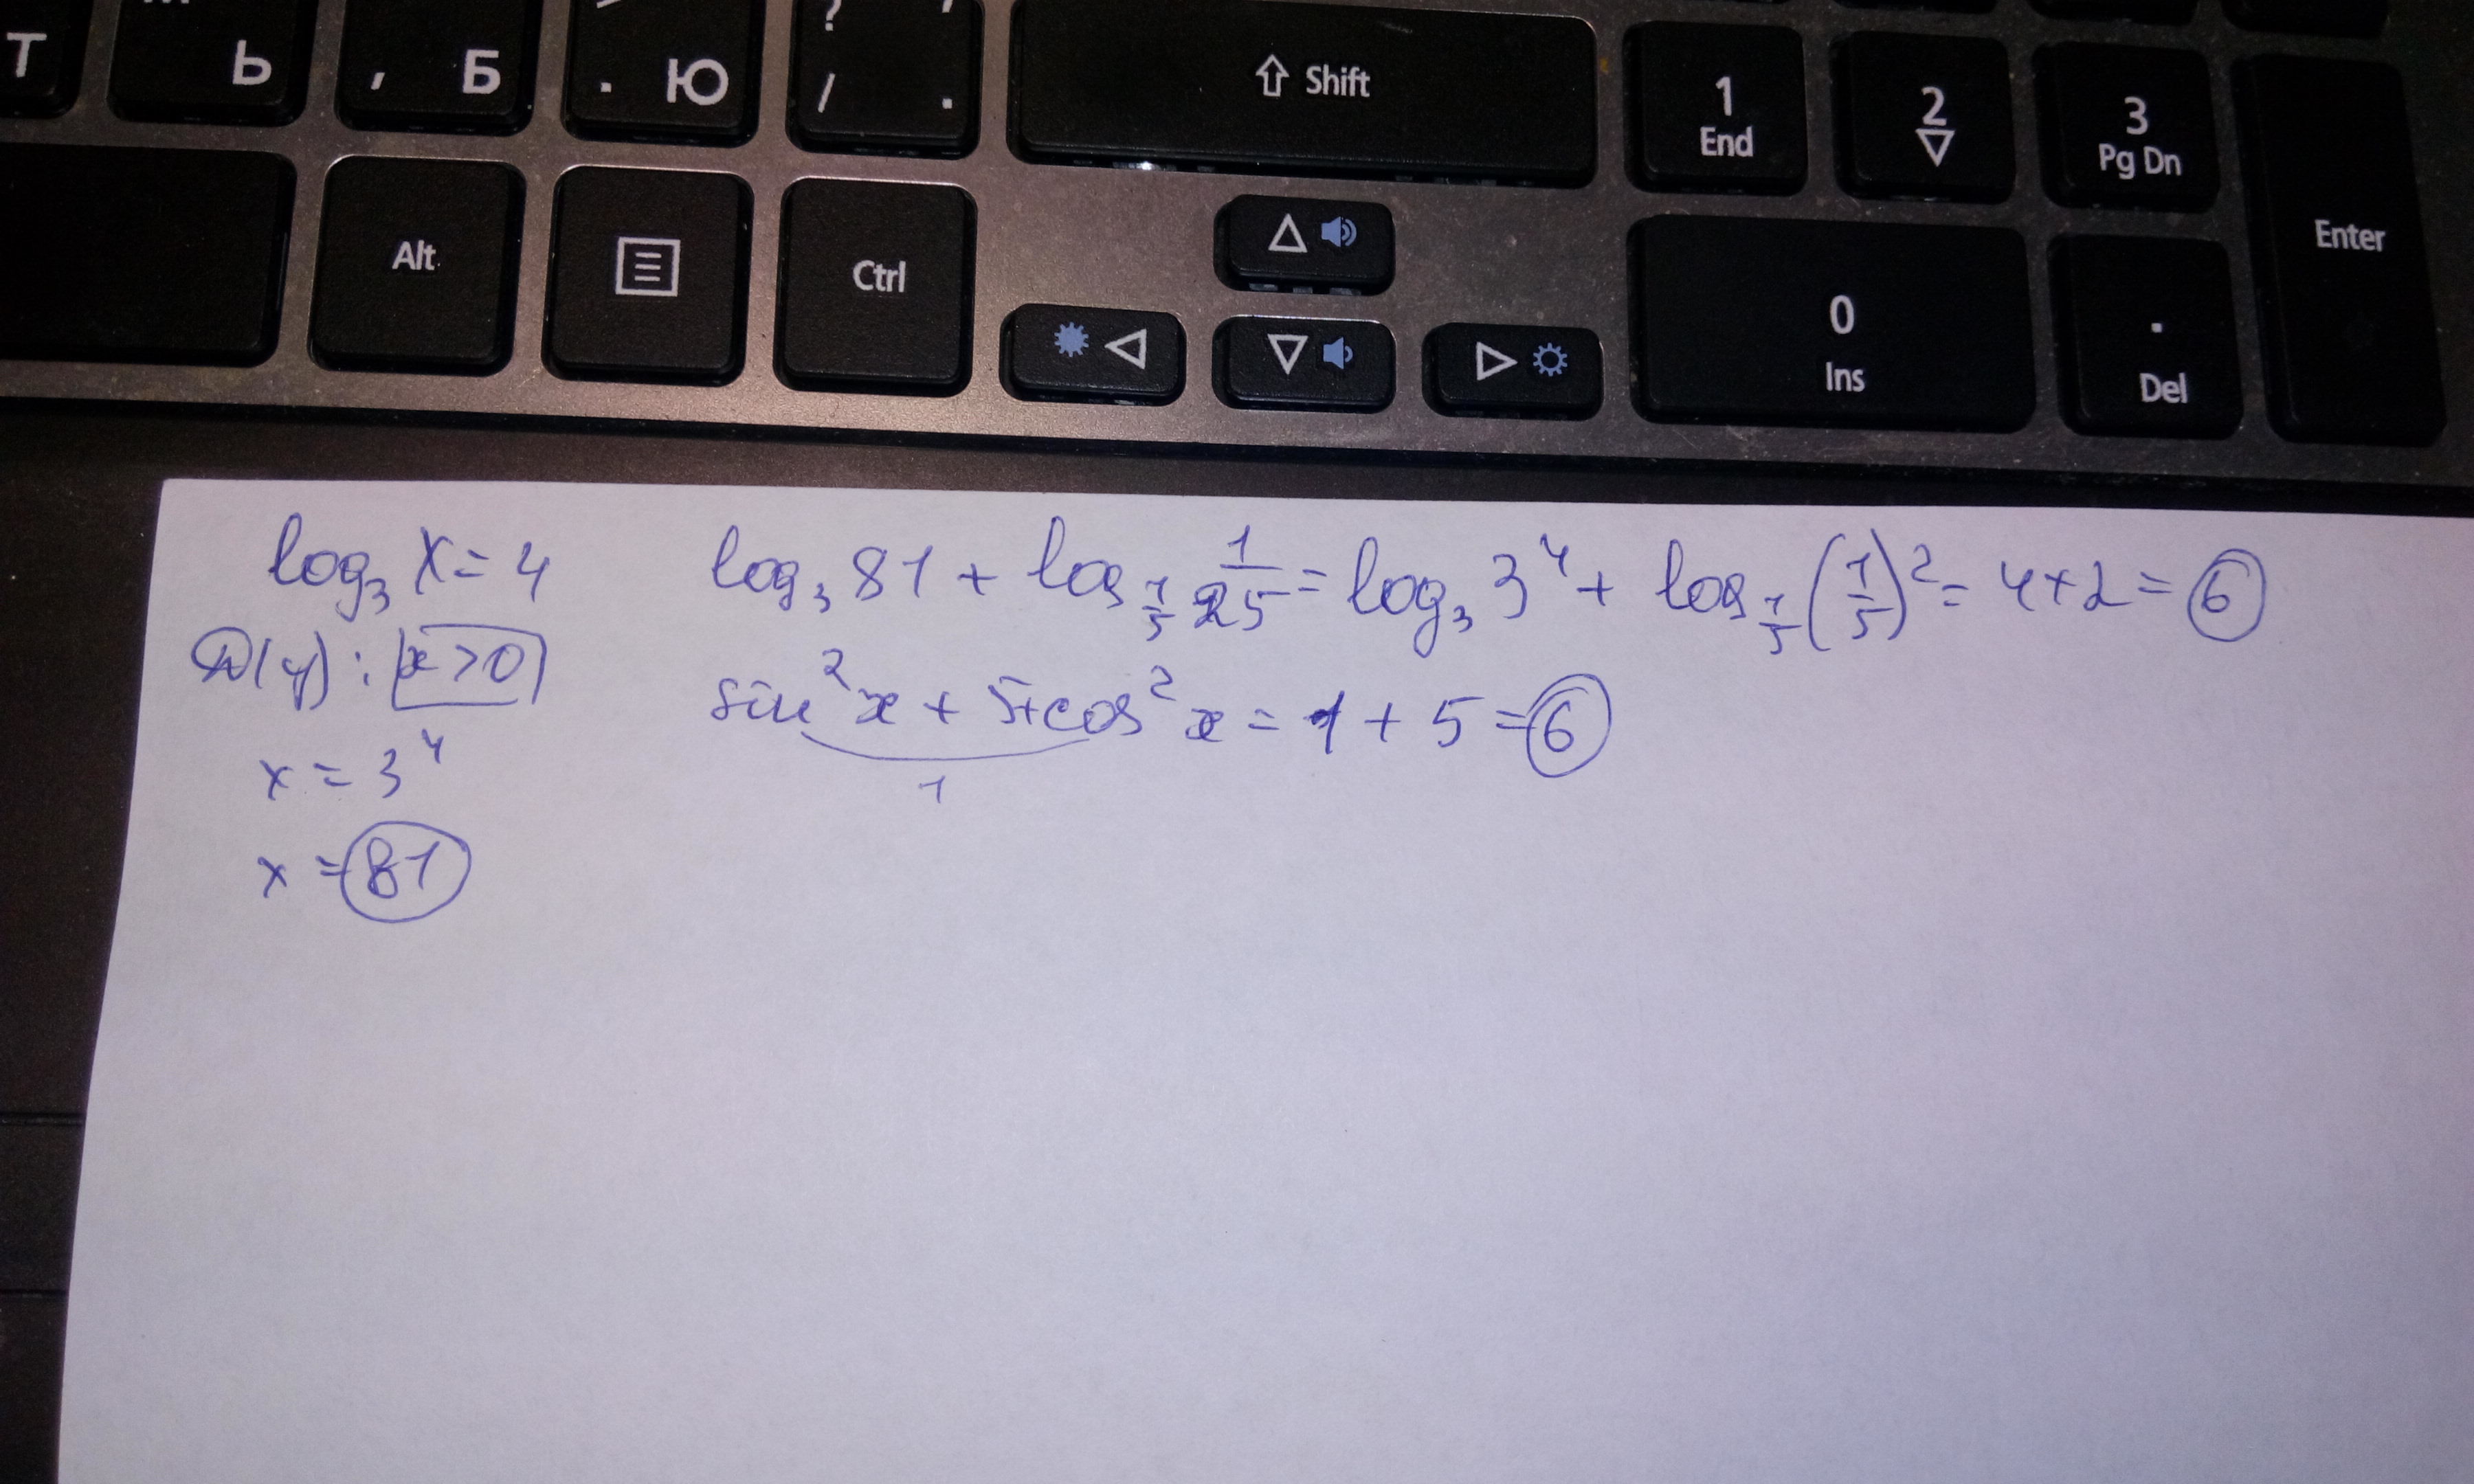 Т Ь , Б . Ю ? / . Shift 1 End 2 3 Pg Dn
Alt Ctrl 0 Ins . Del Enter
log₃ x = 4
D(y) : x > 0
x = 3⁴
x = 81
log₃ 81 + log_{1/5} 1/25 = log₃ 3⁴ + log_{1/5} (1/5)² = 4 + 2 = 6
sin² x + 5 + cos² x = 1 + 5 = 6
1